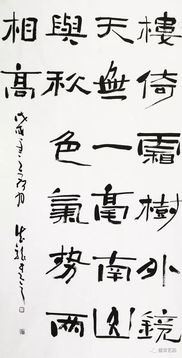 樓倚霜樹外鏡
天無一毫南山
與秋色氣勢兩
相高
戊戌年